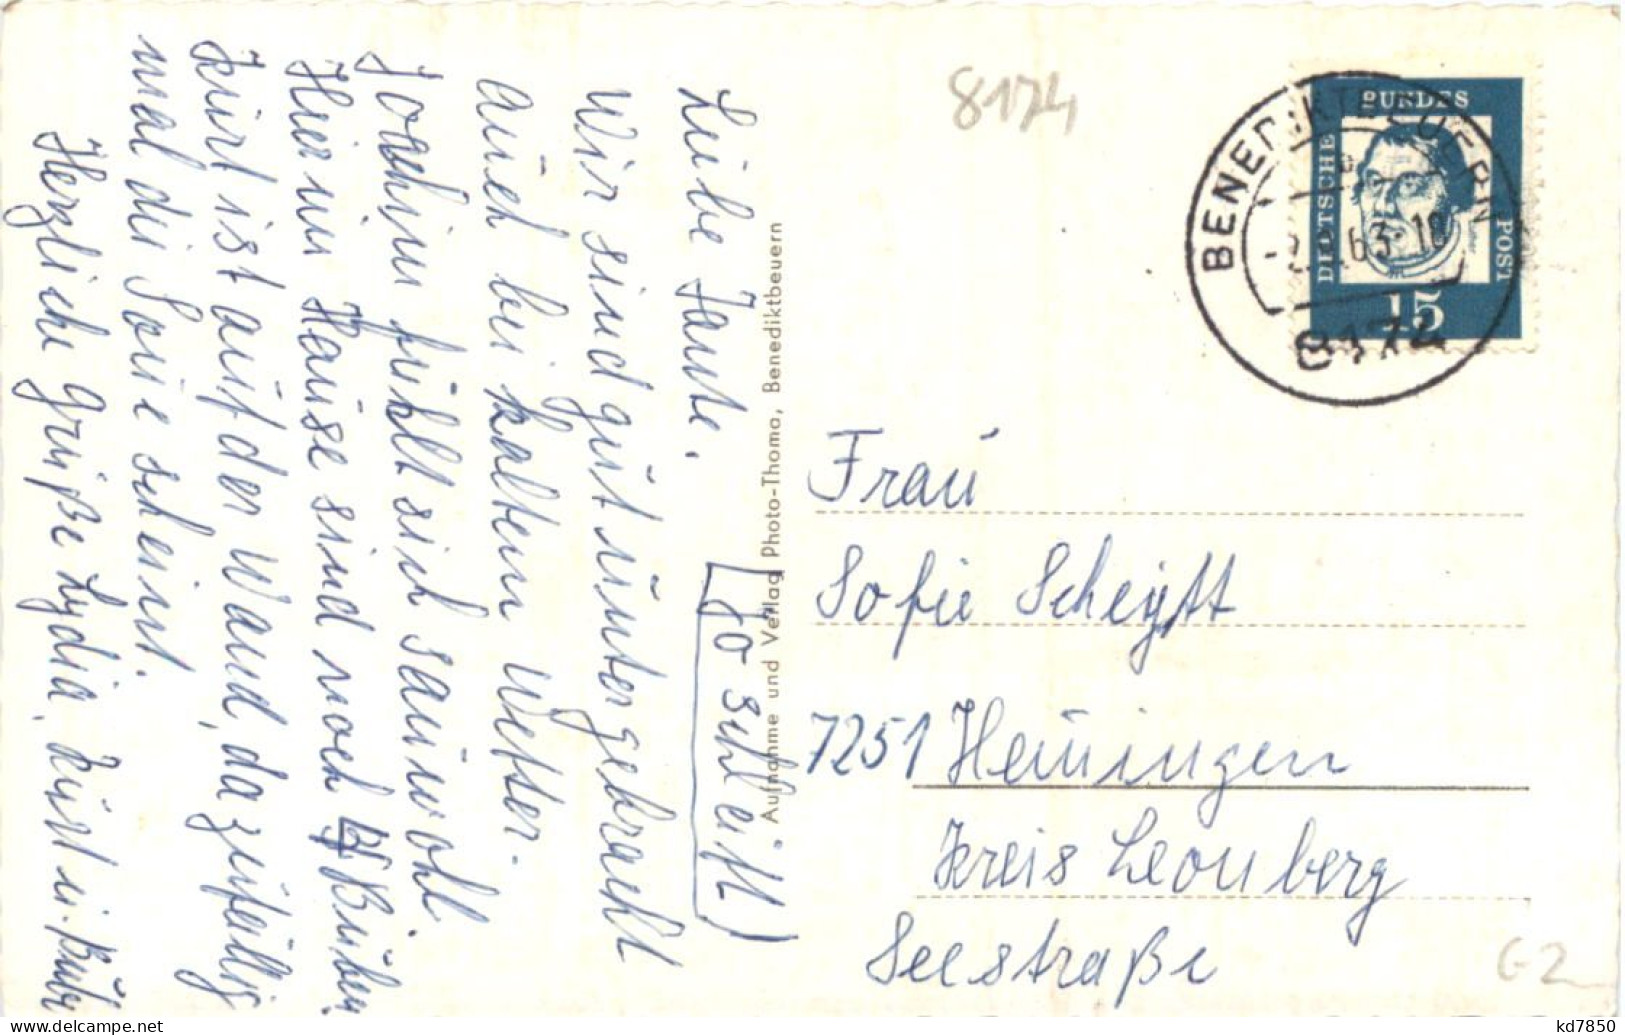 Liebe Tante.
Wir sind gut untergebracht
auch bei kaltem Wetter.
Joachim fühlt sich sauwohl.
Hier im Hause sind noch 4 Buben
Kurt ist auf der Wand, da zufällig
mal die Sonne scheint.
Herzliche Grüße Lydia, Kurt u. Bub
Aufnahme und Verlag Photo-Thoma, Benediktbeuern
8174
BENEDIKTBEUERN
63-18
8174
DEUTSCHE BUNDES POST
15
Frau
Sofie Scheytt
7251 Heimingen
Kreis Leonberg
Seestraße
G2
kd7850